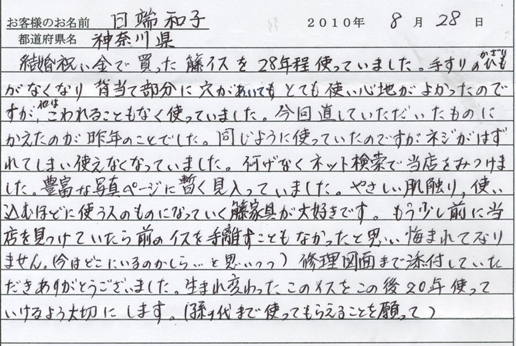 お客様のお名前 日端和子 2010年 8月 28日
都道府県名 神奈川県
結婚祝い金で買った籐イスを28年程使っていました。手すりのかざりひも
がなくなり背当て部分に穴があいてもとても使い心地がよかったので
すが、他はこわれることもなく使っていました。今回直していただいたものに
かえたのが昨年のことでした。同じように使っていたのですがネジがはず
れてしまい使えなくなっていました。何げなくネット検索で当店をみつけま
した。豊富な写真ページに暫く見入っていました。やさしい肌触り、使い
込むほどに使う人のものになっていく籐家具が大好きです。もう少し前に当
店を見つけていたら前のイスを手離すこともなかったと思い悔まれてなり
ません。(今はどこにいるのかしら…と思いつつ)修理図面まで添付していた
だきありがとうございました。生まれ変わったこのイスをこの後20年使って
いけるよう大切にします。(孫の代まで使ってもらえることを願って)